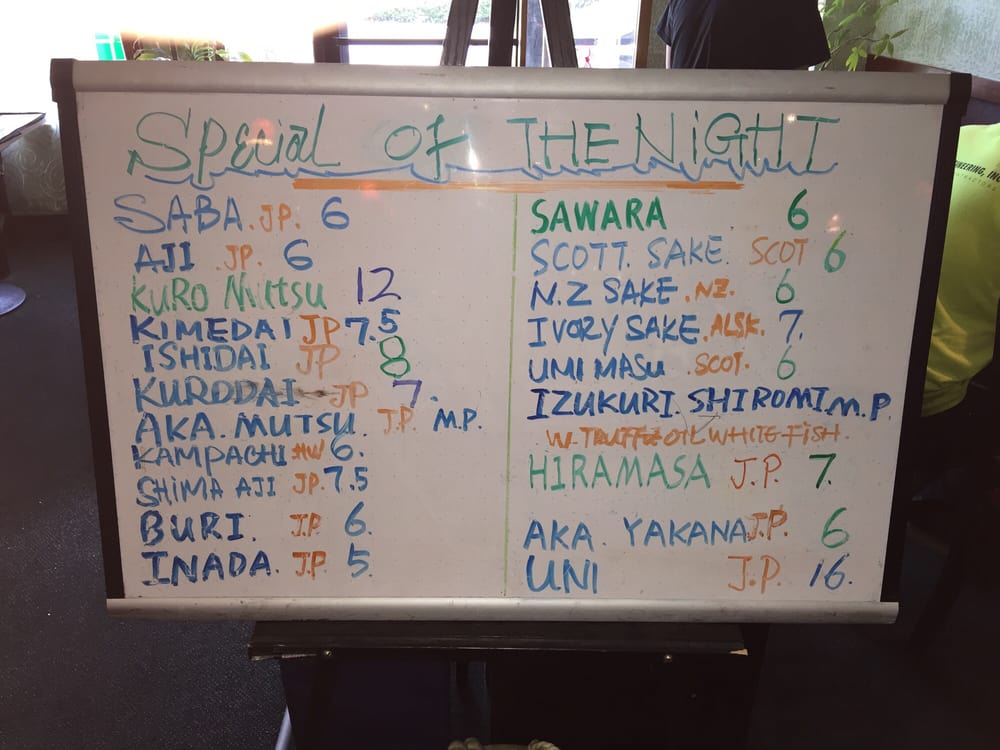 Special OF THE NiGHT
SABA. JP. 6
AJI JP. 6
KURO Mutsu 12
KIMEDAI JP 7.5
ISHIDAI JP 8
KURODAI JP 7.
AKA. MUTSU. J.P. M.P.
KAMPACHI HW 6.
SHIMA AJI JP. 7.5
BURI. J.P. 6.
INADA. J.P. 5.
SAWARA 6
SCOTT. SAKE. SCOT 6
N.Z SAKE. NZ. 6
IVORY SAKE. ALSK. 7.
UMI MASU. SCOT. 6
IZUKURI SHIROMI M.P
W. TRUFFLE OIL WHITE FISH.
HIRAMASA J.P. 7.
AKA. YAKANA J.P. 6
UNI J.P. 16.
INEERING, INC